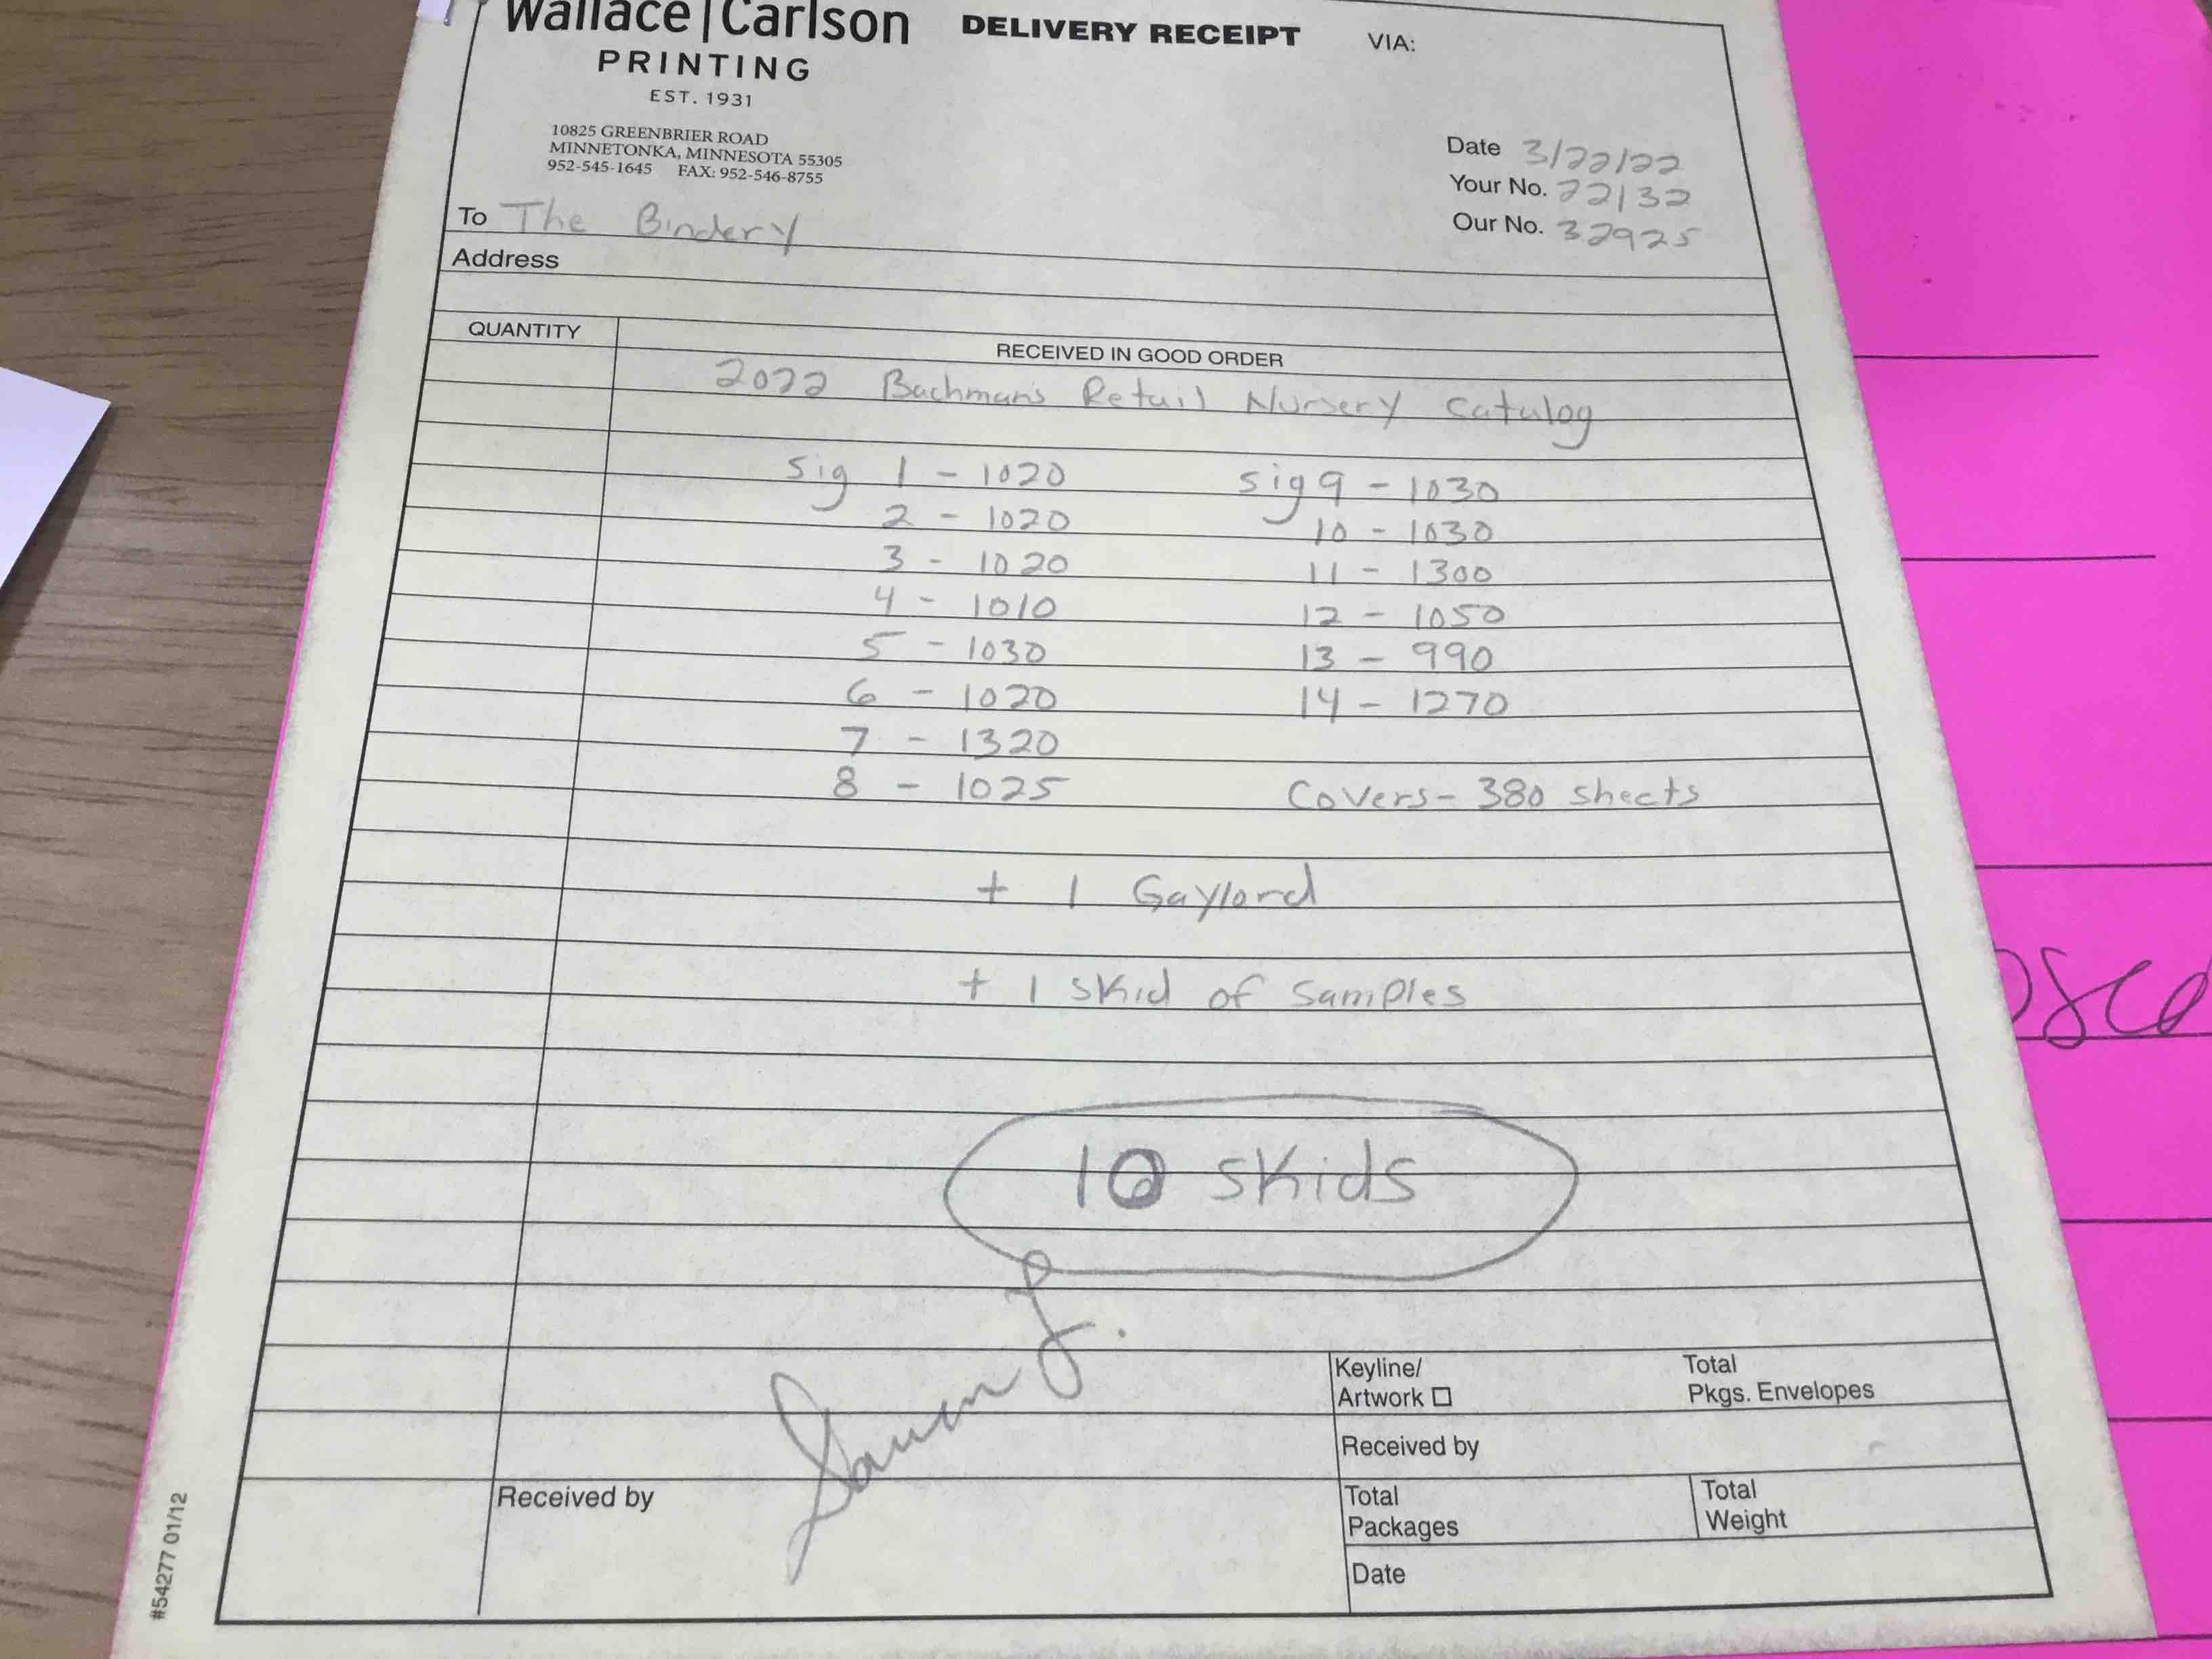 Wallace|Carlson
PRINTING
EST. 1931
10825 GREENBRIER ROAD
MINNETONKA, MINNESOTA 55305
952-545-1645 FAX: 952-546-8755
DELIVERY RECEIPT
VIA:
Date 3/22/22
Your No. 22132
Our No. 32925
To The Bindery
Address
QUANTITY
RECEIVED IN GOOD ORDER
2022 Bachman's Retail Nursery Catalog
Sig 1 - 1020
2 - 1020
3 - 1020
4 - 1010
5 - 1030
6 - 1020
7 - 1320
8 - 1025
Sig 9 - 1030
10 - 1030
11 - 1300
12 - 1050
13 - 990
14 - 1270
Covers - 380 sheets
+ 1 Gaylord
+ 1 skid of samples
10 skids
Keyline/
Artwork
Total
Pkgs. Envelopes
Received by
Received by
Total
Packages
Total
Weight
Date
#54277 01/12